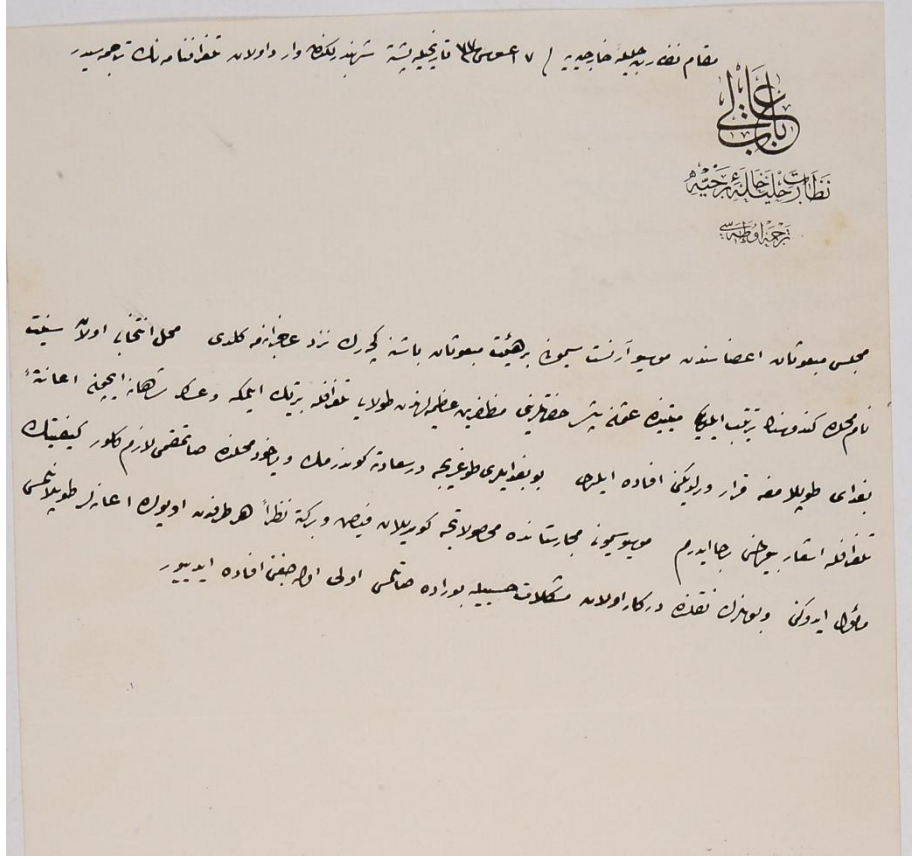 مقام نظارت جلیلهٔ خارجیه یه / ١٧ اغستوس ٧٧ تاریخیله پشته شهبندرلكندن وارد اولان تلغرافنامه نك ترجمه سیدر
باب عالی
نظارت جلیلهٔ خارجیه
ترجمه اوطه سی
مجلس مبعوثان اعضاسندن موسیو آرنست سیمونی برهیئت مبعوثان باشنه كچه رك نزد عاجزانه مه كلدی محل انتخابی اولان
نام محلده كندوسنك ترتیب ایلدیكی میتینغده عثمانلیلر حضرتلرینی مظفریت عظیمه لرندن طولایی تلغرافله تبریك ایلمكه وعساكر شاهانه ایچون اعانةً
بغدای طوپلامغه قرار ویرلدیكنی افاده ایلدی بوبغدایلری طوغریجه درسعادته كوندرمك ویاخود محلنده صاتمقمی لازم كلور كیفیتك
تلغرافله اشعار بیورلمسنی رجا ایدرم موسیو سیمونی مجارستانده محصولاتجه كوریلان فیض وبركته نظراً هر طرفدن اویوله اعانه لر طوپلانیلمسی
مأمول ایدوكنی وبونلرك نقلنده دركار اولان مشكلات حسبیله بوراده صاتلمسی اولی اوله جغنی افاده ایدییور